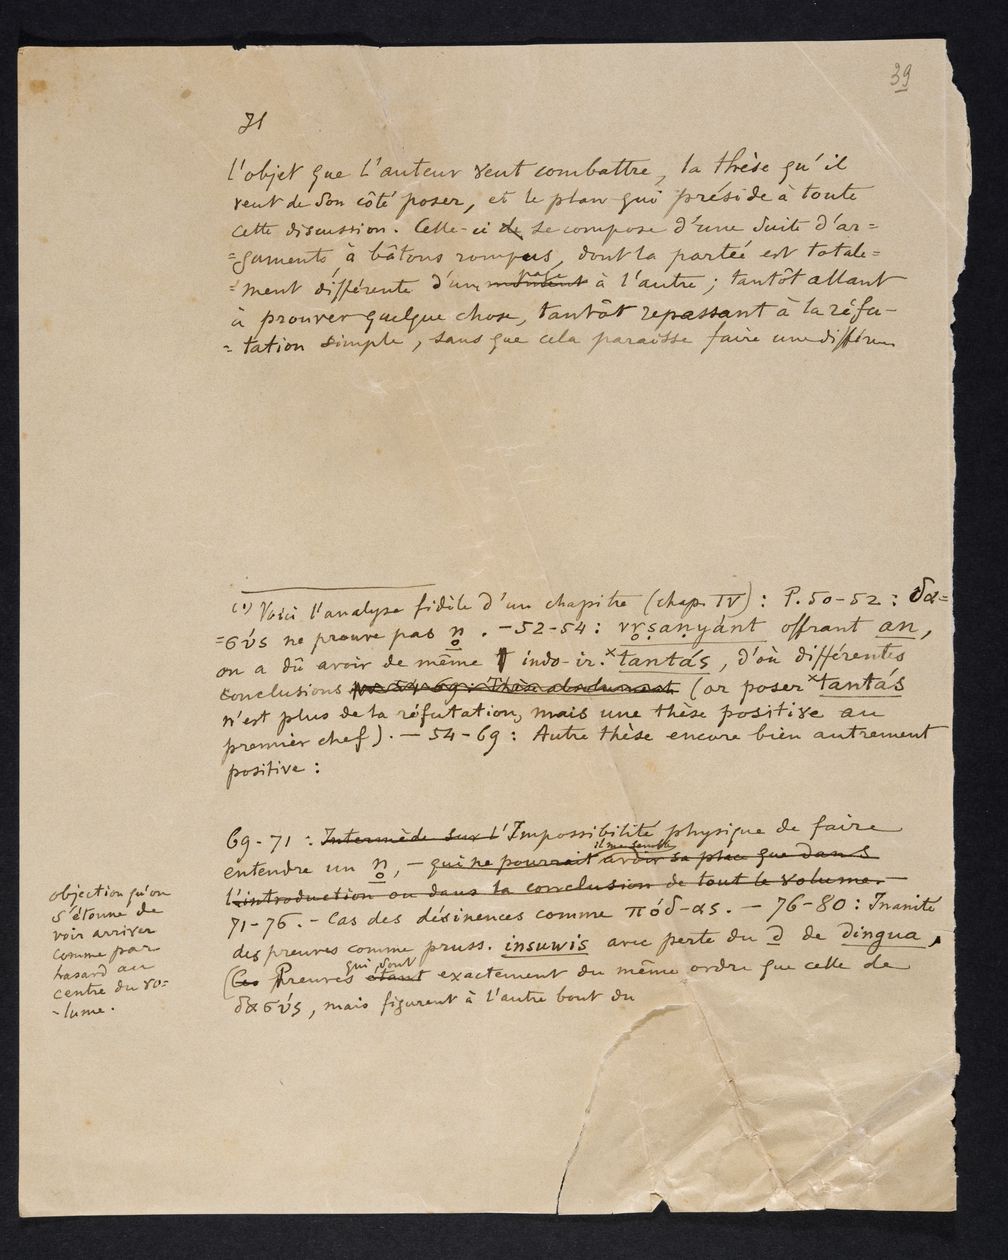 39
71
l'objet que l'auteur veut combattre, la thèse qu'il
veut de son côté poser, et le plan qui préside à toute
cette discussion. Celle-ci de se compose d'une suite d'ar=
=guments à bâtons rompus, dont la portée est totale=
=ment différente d'un moment à l'autre ; tantôt allant
à prouver quelque chose, tantôt repassant à la réfu-
=tation simple, sans que cela paraisse faire une différen
(1) Voici l'analyse fidèle d'un chapitre (chap. IV) : P. 50-52 : δα=
=σύς ne prouve pas n̥. - 52-54 : vr̥ṣaṇyánt offrant an,
on a dû avoir de même indo-ir. ˣtantás, d'où différentes
conclusions pp. 54-69 : Thèse absolument (or poser ˣtantás
n'est plus de la réfutation, mais une thèse positive au
premier chef). — 54-69 : Autre thèse encore bien autrement
positive :
69-71 : Intermède sur l'Impossibilité physique de faire
il me semble
entendre un n̥, - qui ne pourrait avoir sa place que dans
l'introduction ou dans la conclusion de tout le volume. -
71-76. - Cas des désinences comme πόδ-ας. — 76-80 : Inanité
des preuves comme pruss. insuwis avec perte du d de dingua,
qui sont
(Ces Preuves étant exactement du même ordre que celle de
δασύς, mais figurent à l'autre bout du
objection qu'on
s'étonne de
voir arriver
comme par
hasard au
centre du vo=
-lume.